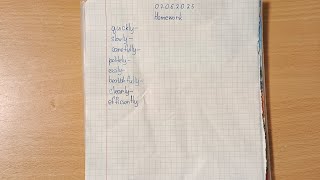 07.05.2025
Homework
quickly-
slowly-
carefully-
politely-
easily-
beautifully-
cleanly-
efficiently-